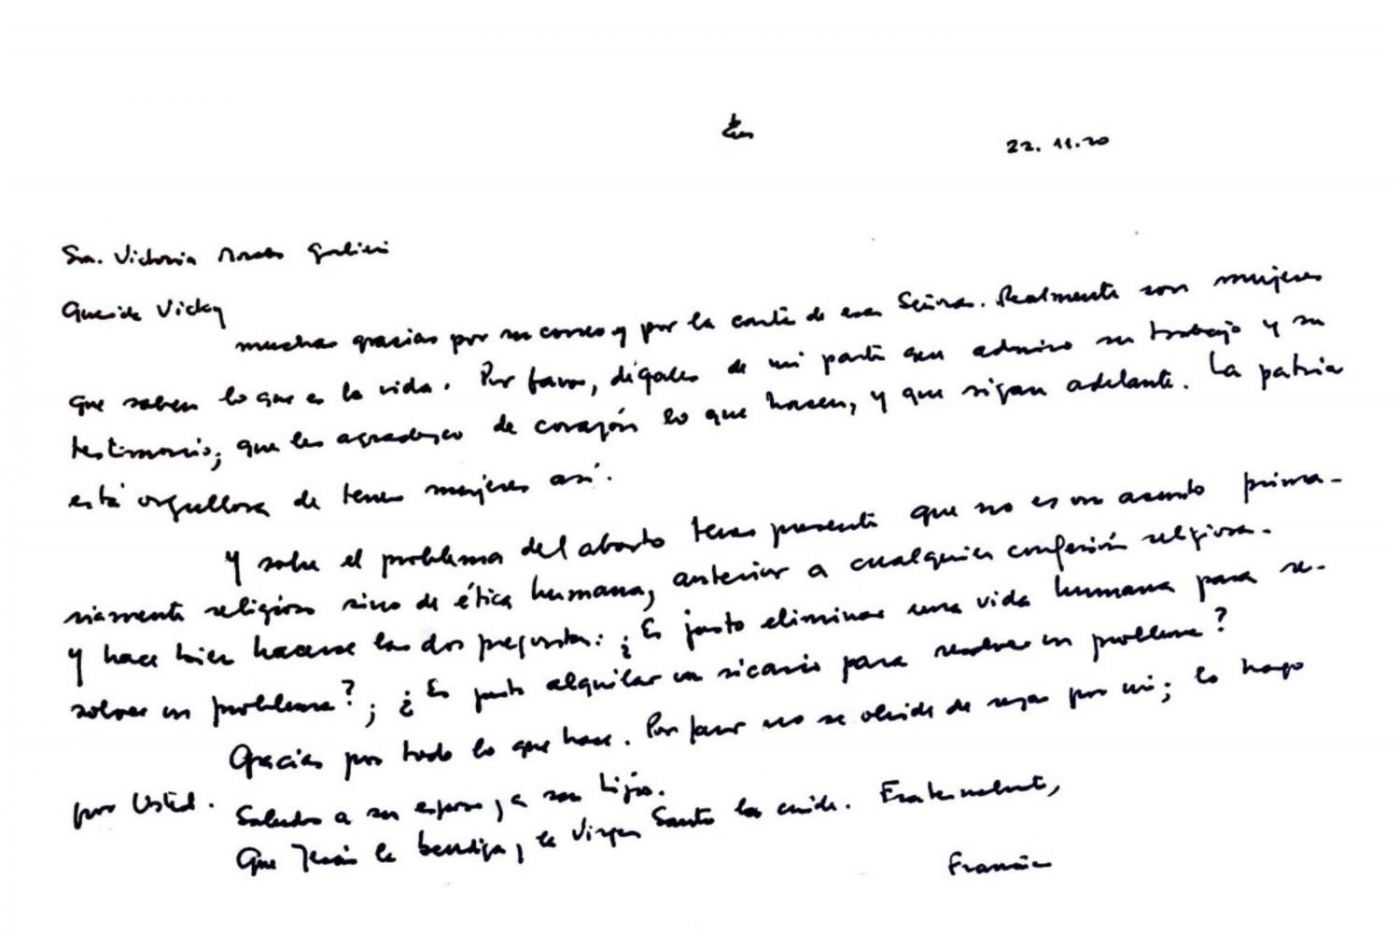 22.11.20
Sra. Victoria Morales Gorleri
Querida Vicky
muchas gracias por su correo y por la carta de esas Señoras. Realmente son mujeres
que saben lo que es la vida. Por favor, dígales de mi parte que admiro su trabajo y su
testimonio; que les agradezco de corazón lo que hacen, y que sigan adelante. La patria
está orgullosa de tener mujeres así.
Y sobre el problema del aborto tener presente que no es un asunto prima-
riamente religioso sino de ética humana, anterior a cualquier confesión religiosa.
Y hace bien hacerse las dos preguntas: ¿Es justo eliminar una vida humana para re-
solver un problema?; ¿Es justo alquilar un sicario para resolver un problema?
Gracias por todo lo que hace. Por favor no se olvide de rezar por mí; lo hago
por Usted.
Saludos a su esposo y a sus hijos.
Que Jesús la bendiga y la Virgen Santa la cuide. Fraternalmente,
Francisco